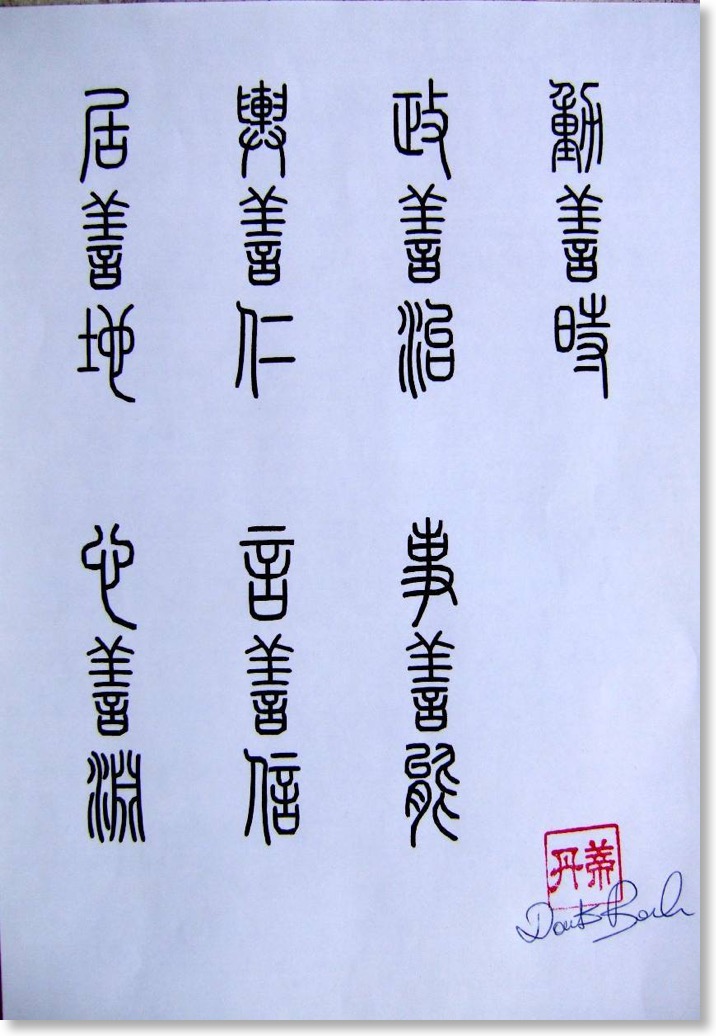 居善地
心善淵
輿善仁
言善信
政善治
事善能
動善時
蒂丹